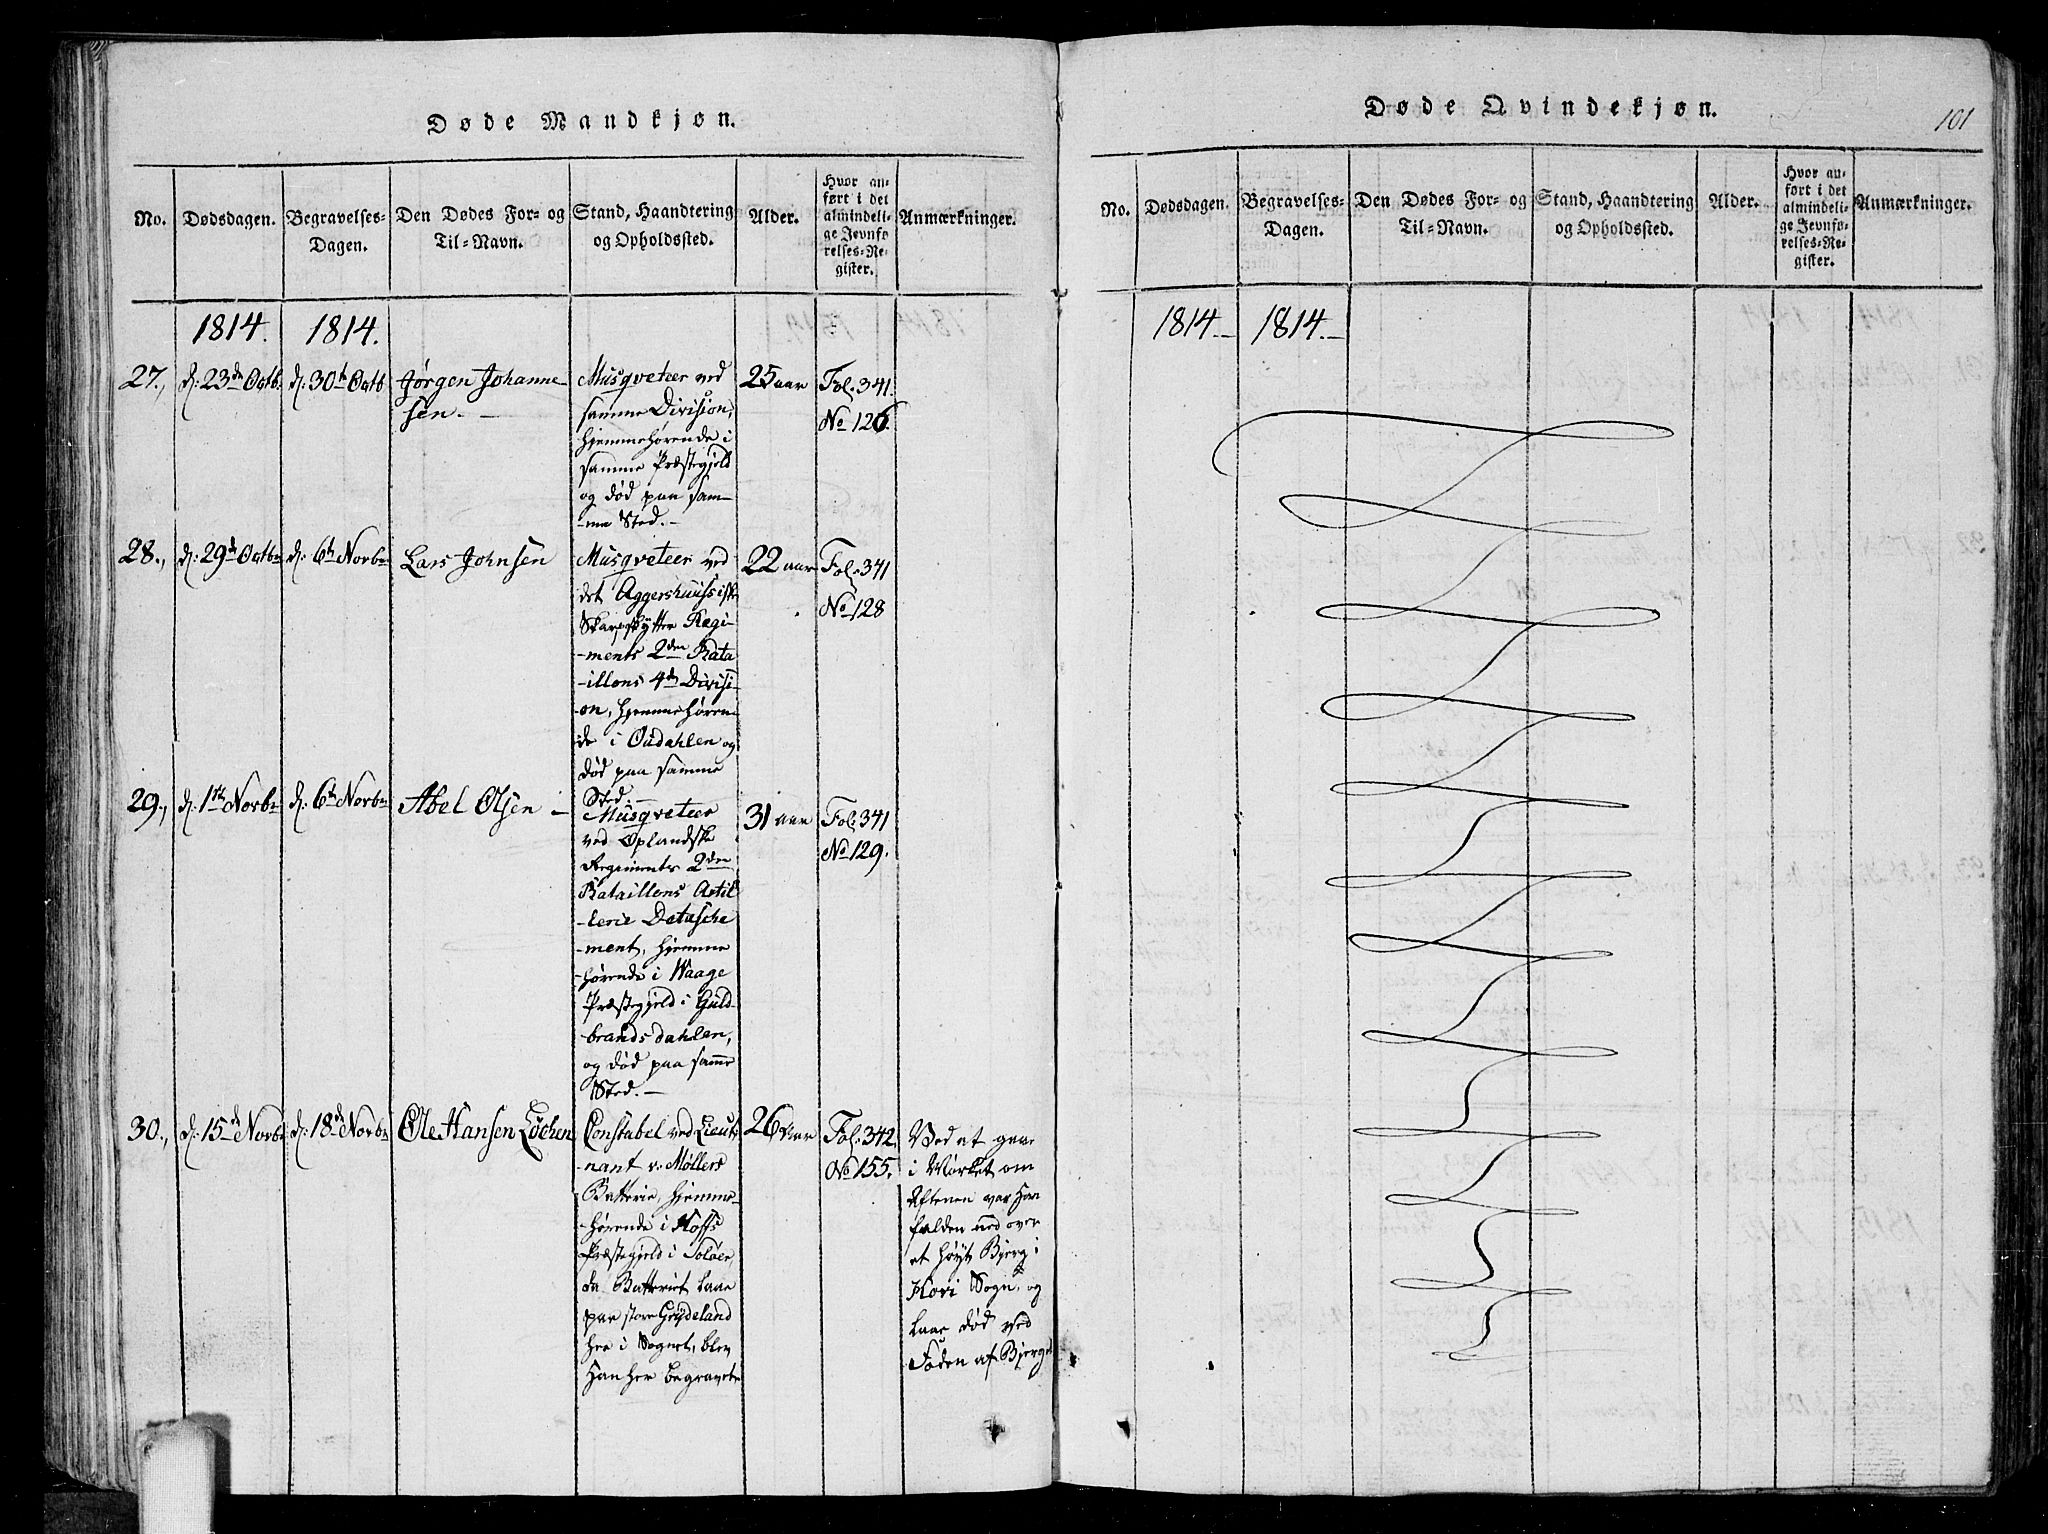 Døde Mandkjøn.
No.
Dødsdagen.
Begravelses-
Dagen.
Den Dødes For- og
Til-Navn.
Stand, Haandtering
og Opholdssted.
Alder.
Hvor an-
ført i det
almindeli-
ge Jevnfø-
relses-Re-
gister.
Anmærkninger.
1814.
1814.
27.,
d: 23de Octb.
d: 30te Octb
Jørgen Johanne-
sen. –
Musqveteer ved
samme Division,
hjemmehørende i
samme Præstegjeld
og død paa sam-
-me Sted. –
25 aar
Fol. 341.
No 126.
28.,
d: 29de Octbr
d: 6te Novbr
Lars Johnsen
Musqveteer ved
det Aggershuusiske
Skarpskytter Regi-
-ments 2den Bata-
-illons 4de Divisi-
-on, hjemmehøren-
de i Oudahlen og
død paa samme
Sted. –
22 aar
Fol. 341
No 128
29.,
d: 1ste Novbr
d: 6te Novbr
Abel Olsen –
Musqveteer
ved Oplandske
Regiments 2den
Bataillons Artil-
-lerie Datasche
-ment, hjemme
-hørende i Waage
Præstegjeld i Guld-
-brandsdahlen,
og død paa samme
Sted. –
31 aar
Fol. 341
No 129.
30.,
d: 15de Novbr
d: 18de Novbr
Ole Hansen Löchen
Constabel ved Lieute-
-nant v: Møllers
Batterie, hjemme-
-hørende i Hoffs
Præstegjeld i Soløer,
da Batteriet laae
paa store Grydeland
her i Sognet, blev
Han her begravet
26 aar
Fol. 342.
No 155.
Ved at gaae
i Mørket om
Aftenen var Han
falden ned over
et høyt Bjerg i
Hovi Sogn, og
laae død ved
Foden af Bjerget
Døde Qvindekjøn.
101
No.
Dødsdagen.
Begravelses-
Dagen.
Den Dødes For- og
Til-Navn.
Stand, Haandtering
og Opholdssted.
Alder.
Hvor an-
ført i det
almindeli-
ge Jevnfø-
relses-Re-
gister.
Anmærkninger.
1814. –
1814. –